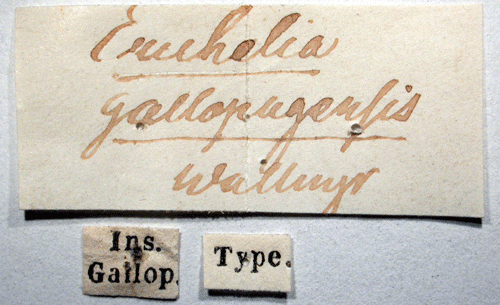 Euchelia
gallopagensis
Wallengr
Ins.
Gallop.
Type.